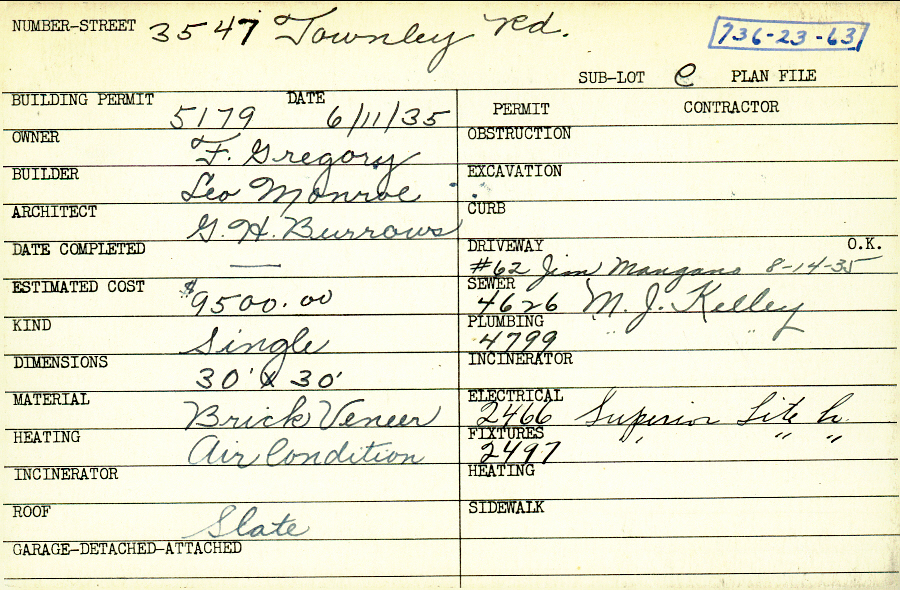 NUMBER-STREET 3547 Townley Rd. 736-23-63
SUB-LOT e PLAN FILE
BUILDING PERMIT 5179 DATE 6/11/35
OWNER F. Gregory
BUILDER Leo Monroe
ARCHITECT G.H. Burrows
DATE COMPLETED —
ESTIMATED COST $9500.00
KIND Single
DIMENSIONS 30' x 30'
MATERIAL Brick Veneer
HEATING Air Condition
INCINERATOR
ROOF Slate
GARAGE-DETACHED-ATTACHED
PERMIT CONTRACTOR
OBSTRUCTION
EXCAVATION
CURB
DRIVEWAY O.K.
#62 Jim Mangano 8-14-35
SEWER
4626 M. J. Kelley
PLUMBING
4799 " "
INCINERATOR
ELECTRICAL
2466 Superior Lite Co.
FIXTURES
2497 " " "
HEATING
SIDEWALK